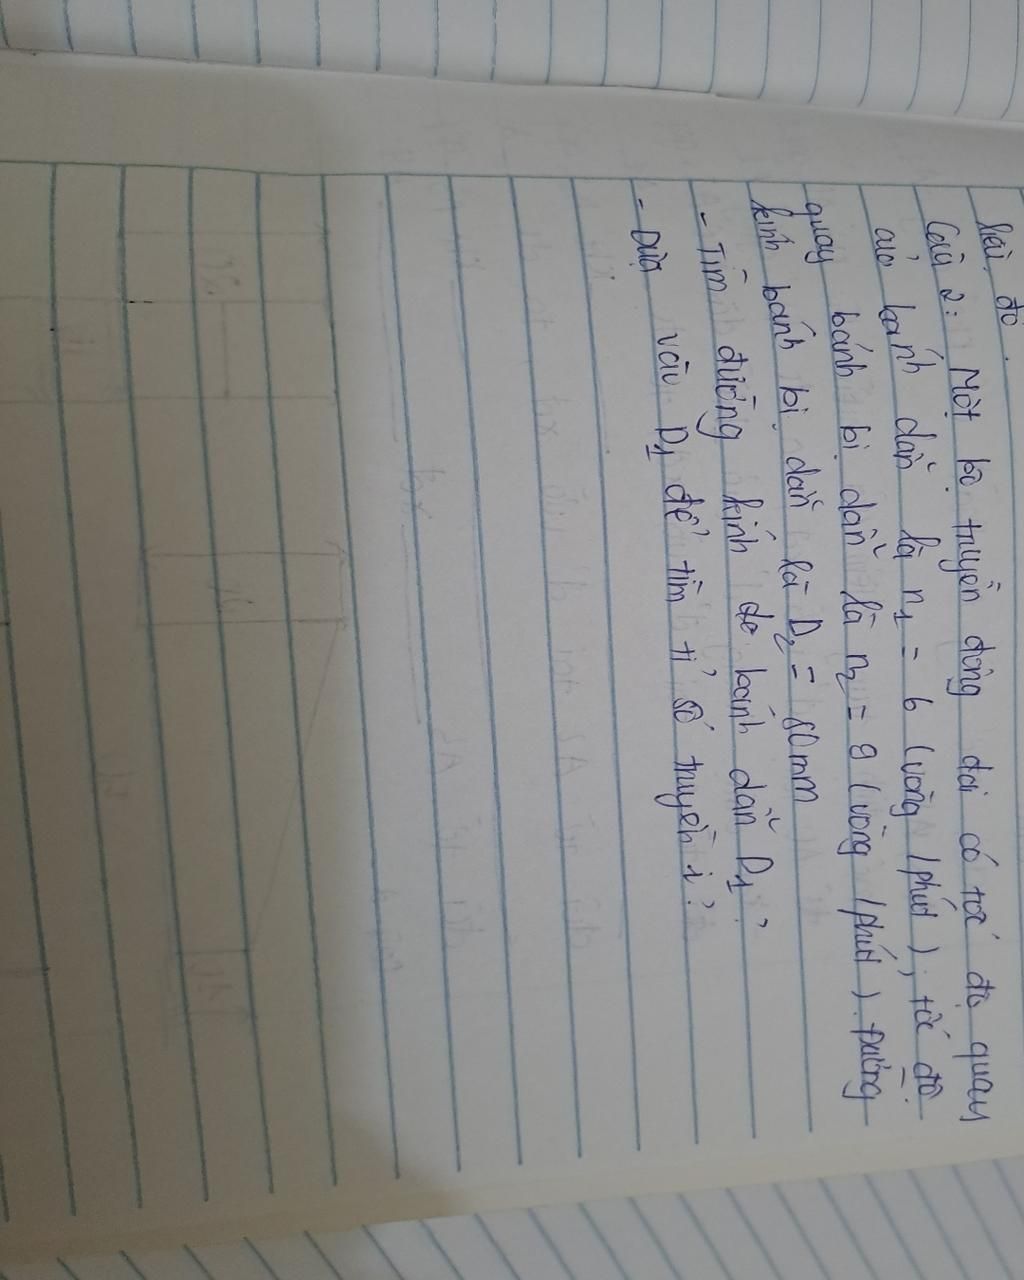 liệu đo.
Câu 2: Một bộ truyền động đai có tốc độ quay
của bánh dẫn là n1 = 6 (vòng /phút), tốc độ
quay bánh bị dẫn là n2 = 8 (vòng /phút). Đường
kính bánh bị dẫn là D2 = 80mm
- Tìm đường kính do bánh dẫn D1?
- Dựa vào D1 để tìm tỉ số truyền i?